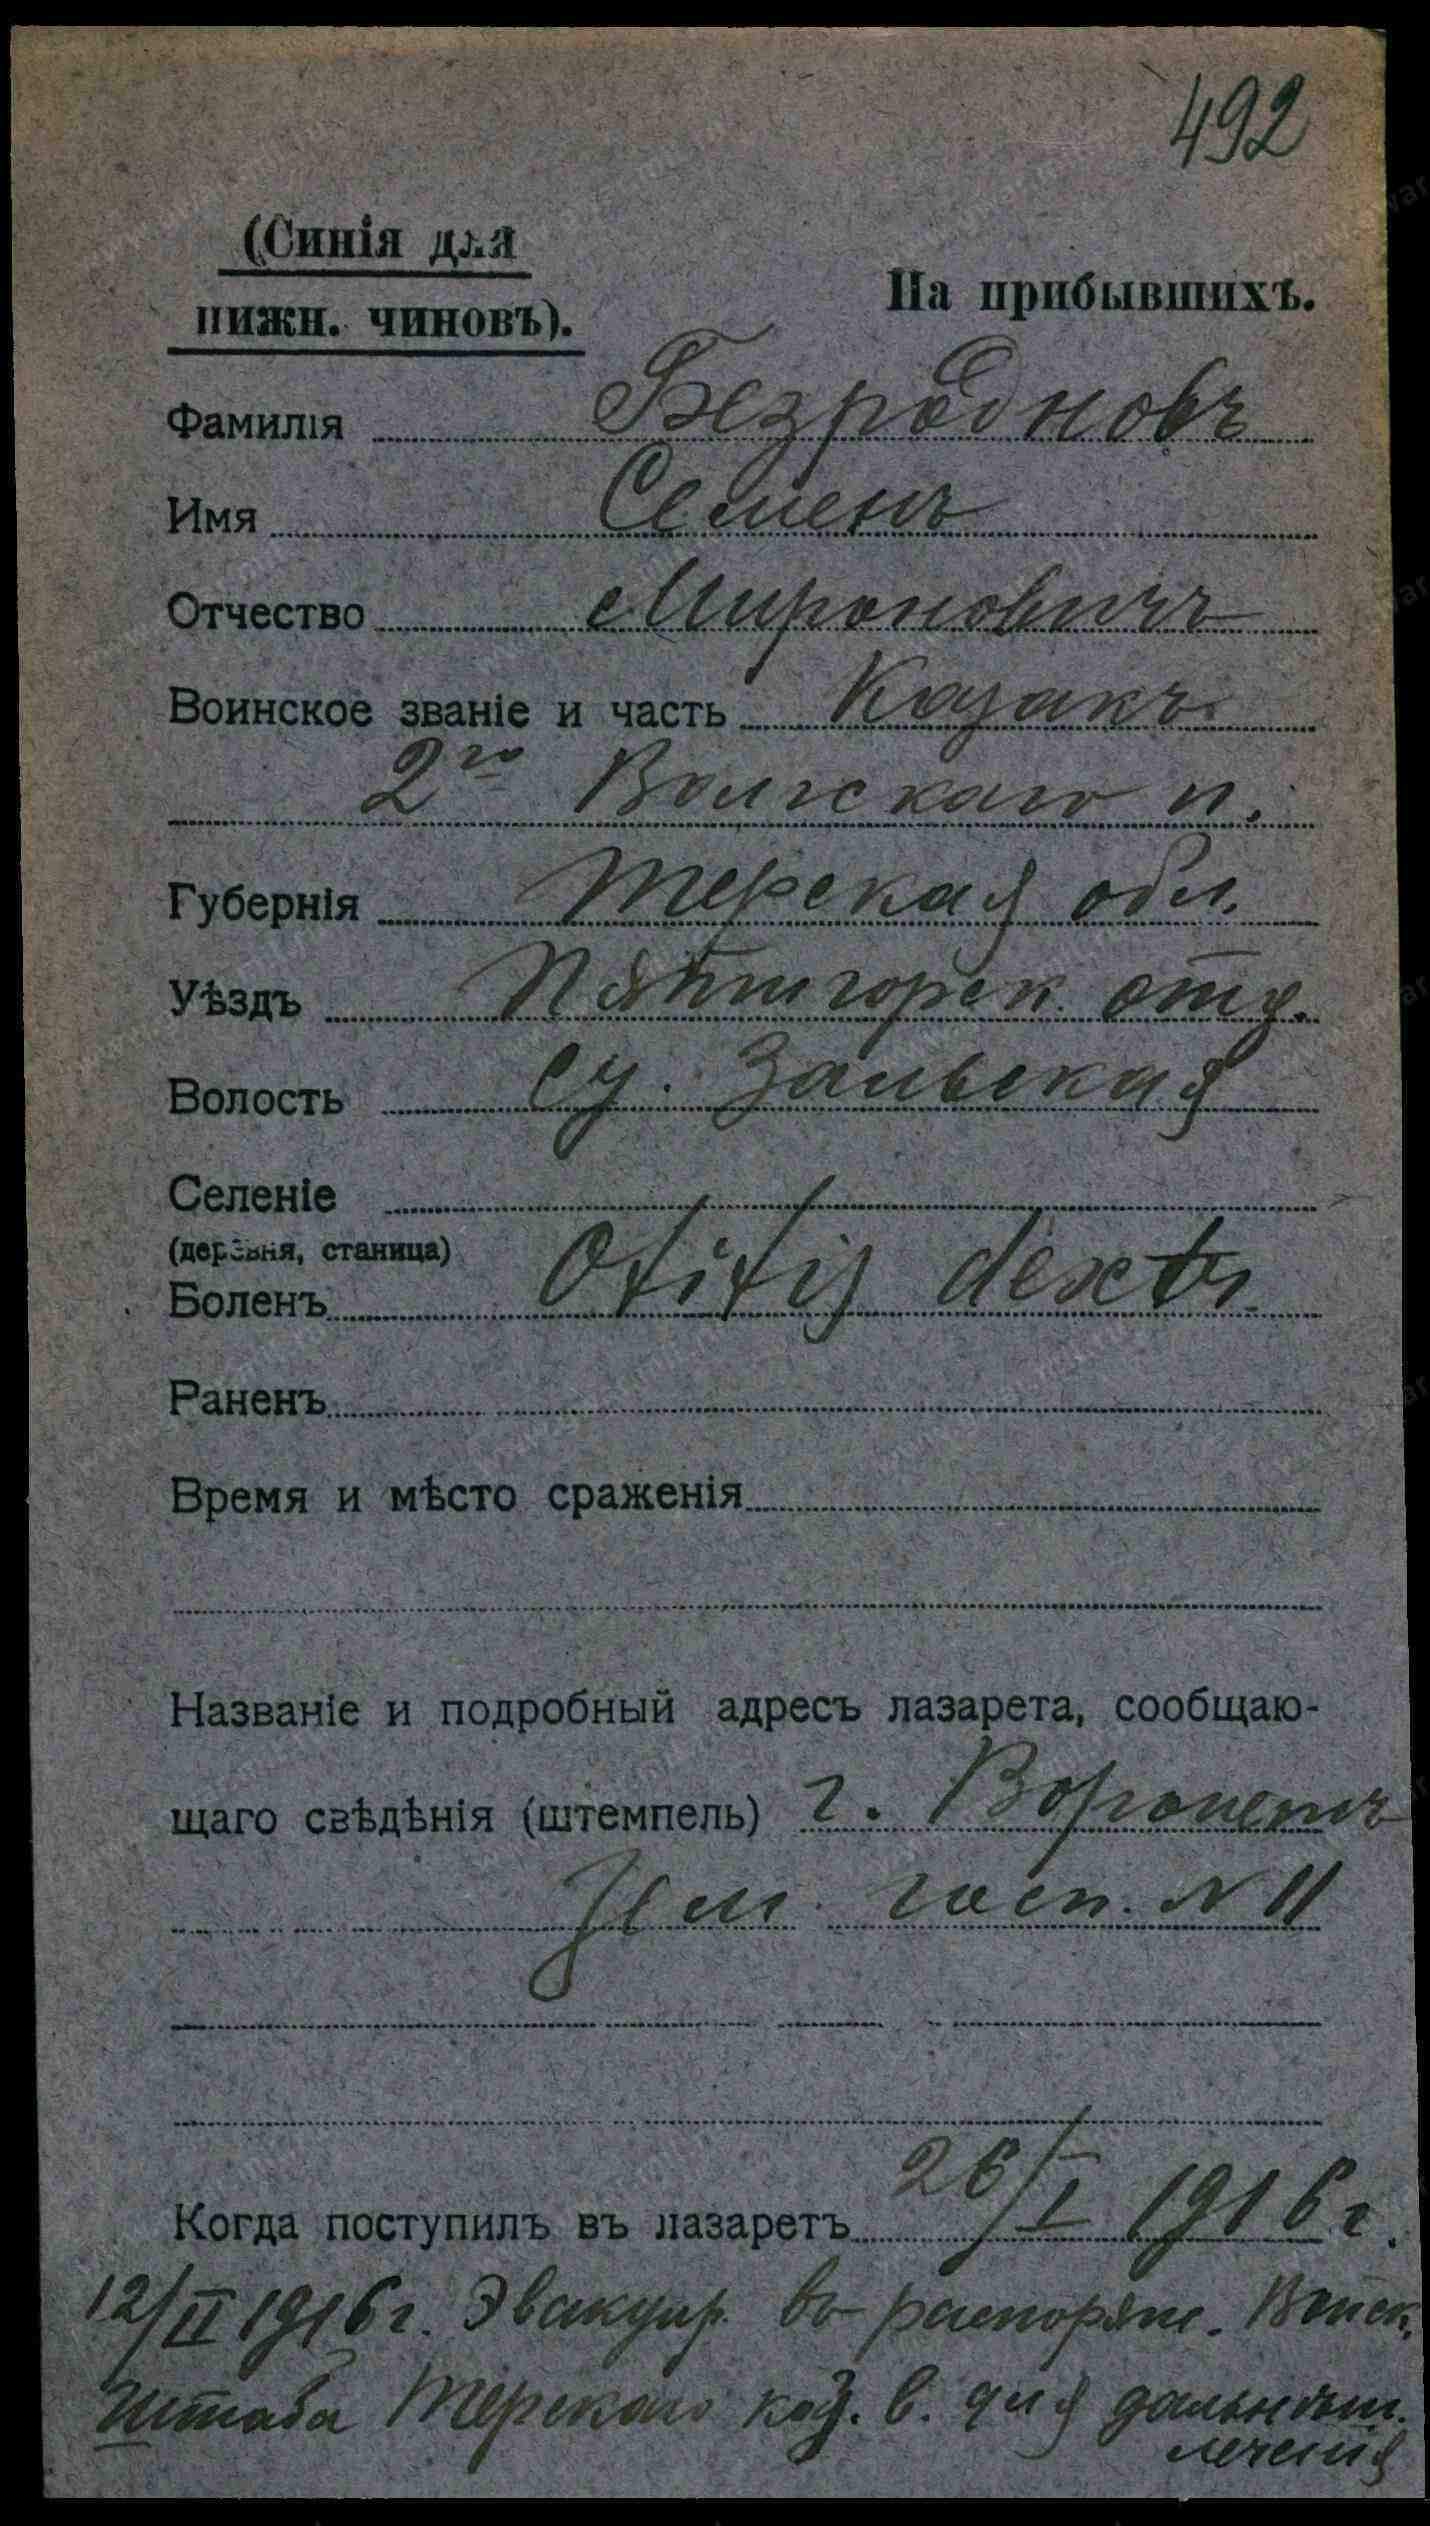 492
(Синія для
нижн. чиновъ).
На прибывшихъ.
Фамилія Безродновъ
Имя Семенъ
Отчество Мироновичъ
Воинское званіе и часть Казакъ
2го Волгскаго п.
Губернія Терская обл.
Уѣздъ Пятигорск. отд.
Волость ст. Зольская
Селеніе
(деревня, станица)
Боленъ Otitis dextr.
Раненъ
Время и мѣсто сраженія
Названіе и подробный адресъ лазарета, сообщаю-
щаго свѣдѣнія (штемпель) г. Воронежъ
Зем. госп. N 11
Когда поступилъ въ лазаретъ 26/I 1916 г.
12/II 1916 г. Эвакуир. въ распоряж. Войск.
Штаба Терскаго каз. в. для дальнѣйш.
лечения